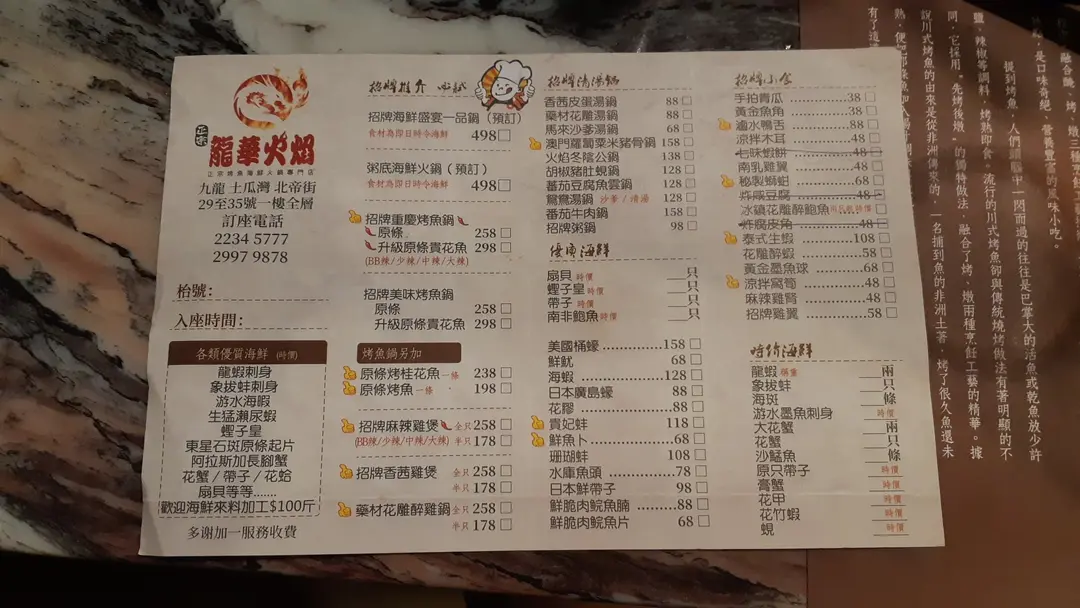 正宗
龍華火焰
正宗烤魚海鮮火鍋專門店
九龍 土瓜灣 北帝街
29至35號一樓全層
訂座電話
2234 5777
2997 9878
枱號:
入座時間:
各類優質海鮮 (時價)
龍蝦刺身
象拔蚌刺身
游水海蝦
生猛瀨尿蝦
蟶子皇
東星石斑原條起片
阿拉斯加長腳蟹
花蟹/帶子/花蛤
扇貝等等.......
歡迎海鮮來料加工$100斤
多谢加一服務收費
招牌推介 必試
招牌海鮮盛宴一品鍋(預訂)
食材為即日時令海鮮 498
粥底海鮮火鍋(預訂)
食材為即日時令海鮮 498
招牌重慶烤魚鍋
原條 258
升級原條貴花魚 298
(BB辣/少辣/中辣/大辣)
招牌美味烤魚鍋
原條 258
升級原條貴花魚 298
烤魚鍋另加
原條烤桂花魚 一條 238
原條烤魚 一條 198
招牌麻辣雞煲 全只 258
(BB辣/少辣/中辣/大辣) 半只 178
招牌香茜雞煲 全只 258
半只 178
藥材花雕醉雞鍋 全只 258
半只 178
招牌清湯鍋
香茜皮蛋湯鍋 88
藥材花雕湯鍋 88
馬來沙爹湯鍋 68
澳門蘿蔔粟米豬骨鍋 158
火焰冬陰公鍋 138
胡椒豬肚蜆鍋 128
蕃茄豆腐魚雲鍋 128
鴛鴦湯鍋 沙爹/清湯 128
番茄牛肉鍋 158
招牌粥鍋 98
優質海鮮
扇貝 時價 __只
蟶子皇 時價 __只
帶子 時價 __只
南非鮑魚 時價 __只
美國桶蠔 ......158
鮮魷 68
海蝦 ......128
日本廣島蠔 88
花膠 ......88
貴妃蚌 118
鮮魚卜 ......68
珊瑚蚌 108
水庫魚頭 ......78
日本鮮帶子 98
鮮脆肉鯇魚腩 ......88
鮮脆肉鯇魚片 68
招牌小食
手拍青瓜 ......38
黃金魚角 38
滷水鴨舌 ......88
涼拌木耳 48
七味蝦餅 ......48
南乳雞翼 48
秘製螄蚶 ......68
炸咸豆腐 48
冰鎮花雕醉鮑魚
炸腐皮角 48
泰式生蝦 ......108
花雕醉蝦 58
黃金墨魚球 ......68
涼拌窩筍 48
麻辣雞腎 ......48
招牌雞翼 58
時价海鮮
龍蝦 __兩
象拔蚌 __只
海斑 __條
游水墨魚刺身 時價
大花蟹 __兩
花蟹 __只
沙鯭魚 __條
原只帶子 時價
膏蟹 時價
花甲 時價
花竹蝦 時價
蜆 時價
提到烤魚,人們頭腦中一閃而過的往往是巴掌大的活魚或乾魚放少許
鹽,辣椒等調料,烤熟即食。流行的川式烤魚卻與傳統燒烤做法有著明顯的不
同,它採用。先烤後燉。的獨特做法,融合了烤、燉兩種烹飪工藝的精華。據
說川式烤魚的由來是從非洲傳來的,一名捕到魚的非洲土著,烤了很久魚還未